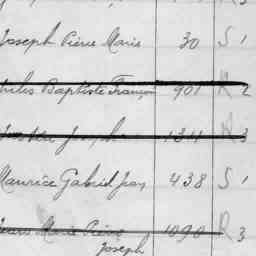 Joseph Pierre Marie 30 S 1
Jules Baptiste François 901 R 2
Joseph 1311 R 3
Maurice Gabriel Jean 438 S 1
Marie Pierre 1090 R 3
Joseph